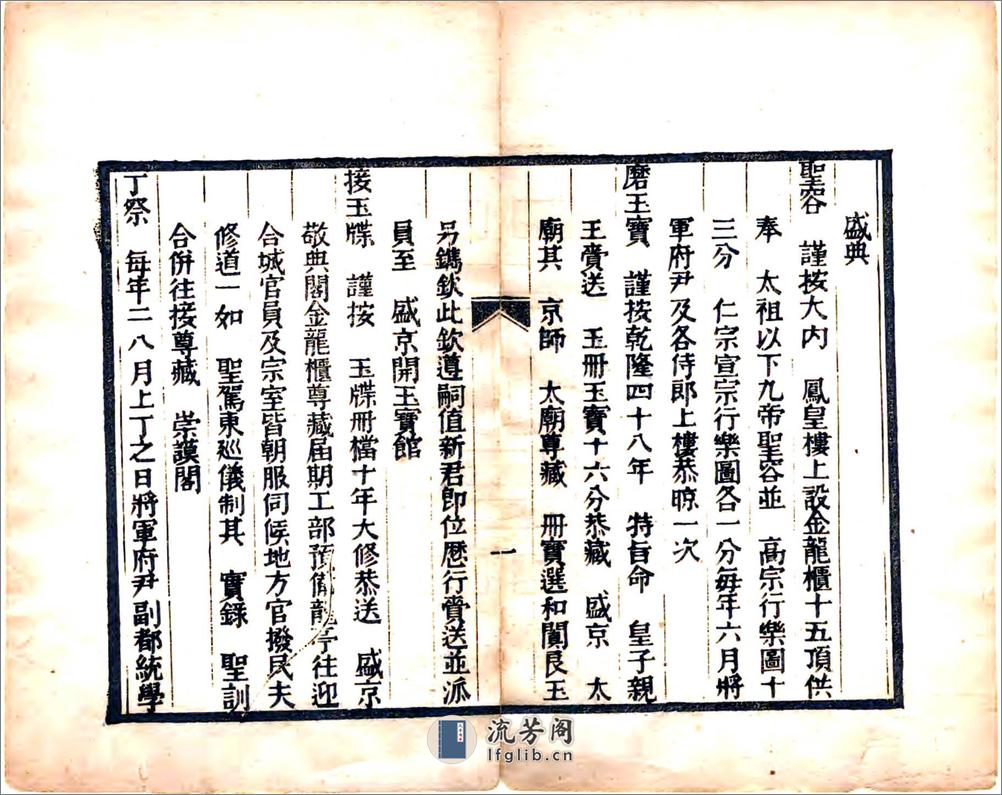 盛典
聖容　謹按大内　鳳皇樓上設金龍櫃十五頂供
奉　太祖以下九帝聖容並　高宗行樂圖十
三分　仁宗宣宗行樂圖各一分每年六月將
軍府尹及各侍郎上樓恭晾一次
磨玉寶　謹按乾隆四十八年　特旨命　皇子親
王賫送　玉册玉寶十六分恭藏　盛京　太
廟其　京師　太廟尊藏　册寶選和闐良玉
另鐫欽此欽遵嗣值新君即位歷行賫送並派
員至　盛京開玉寶館
接玉牒　謹按　玉牒册檔十年大修恭送　盛京
敬典閣金龍櫃尊藏届期工部預俻龍亭往迎
合城官員及宗室皆朝服伺候地方官撥民夫
修道一如　聖駕東廵儀制其　實錄　聖訓
合併往接尊藏　崇謨閣
丁祭　每年二八月上丁之日將軍府尹副都統學
一
流芳阁
lfglib.cn